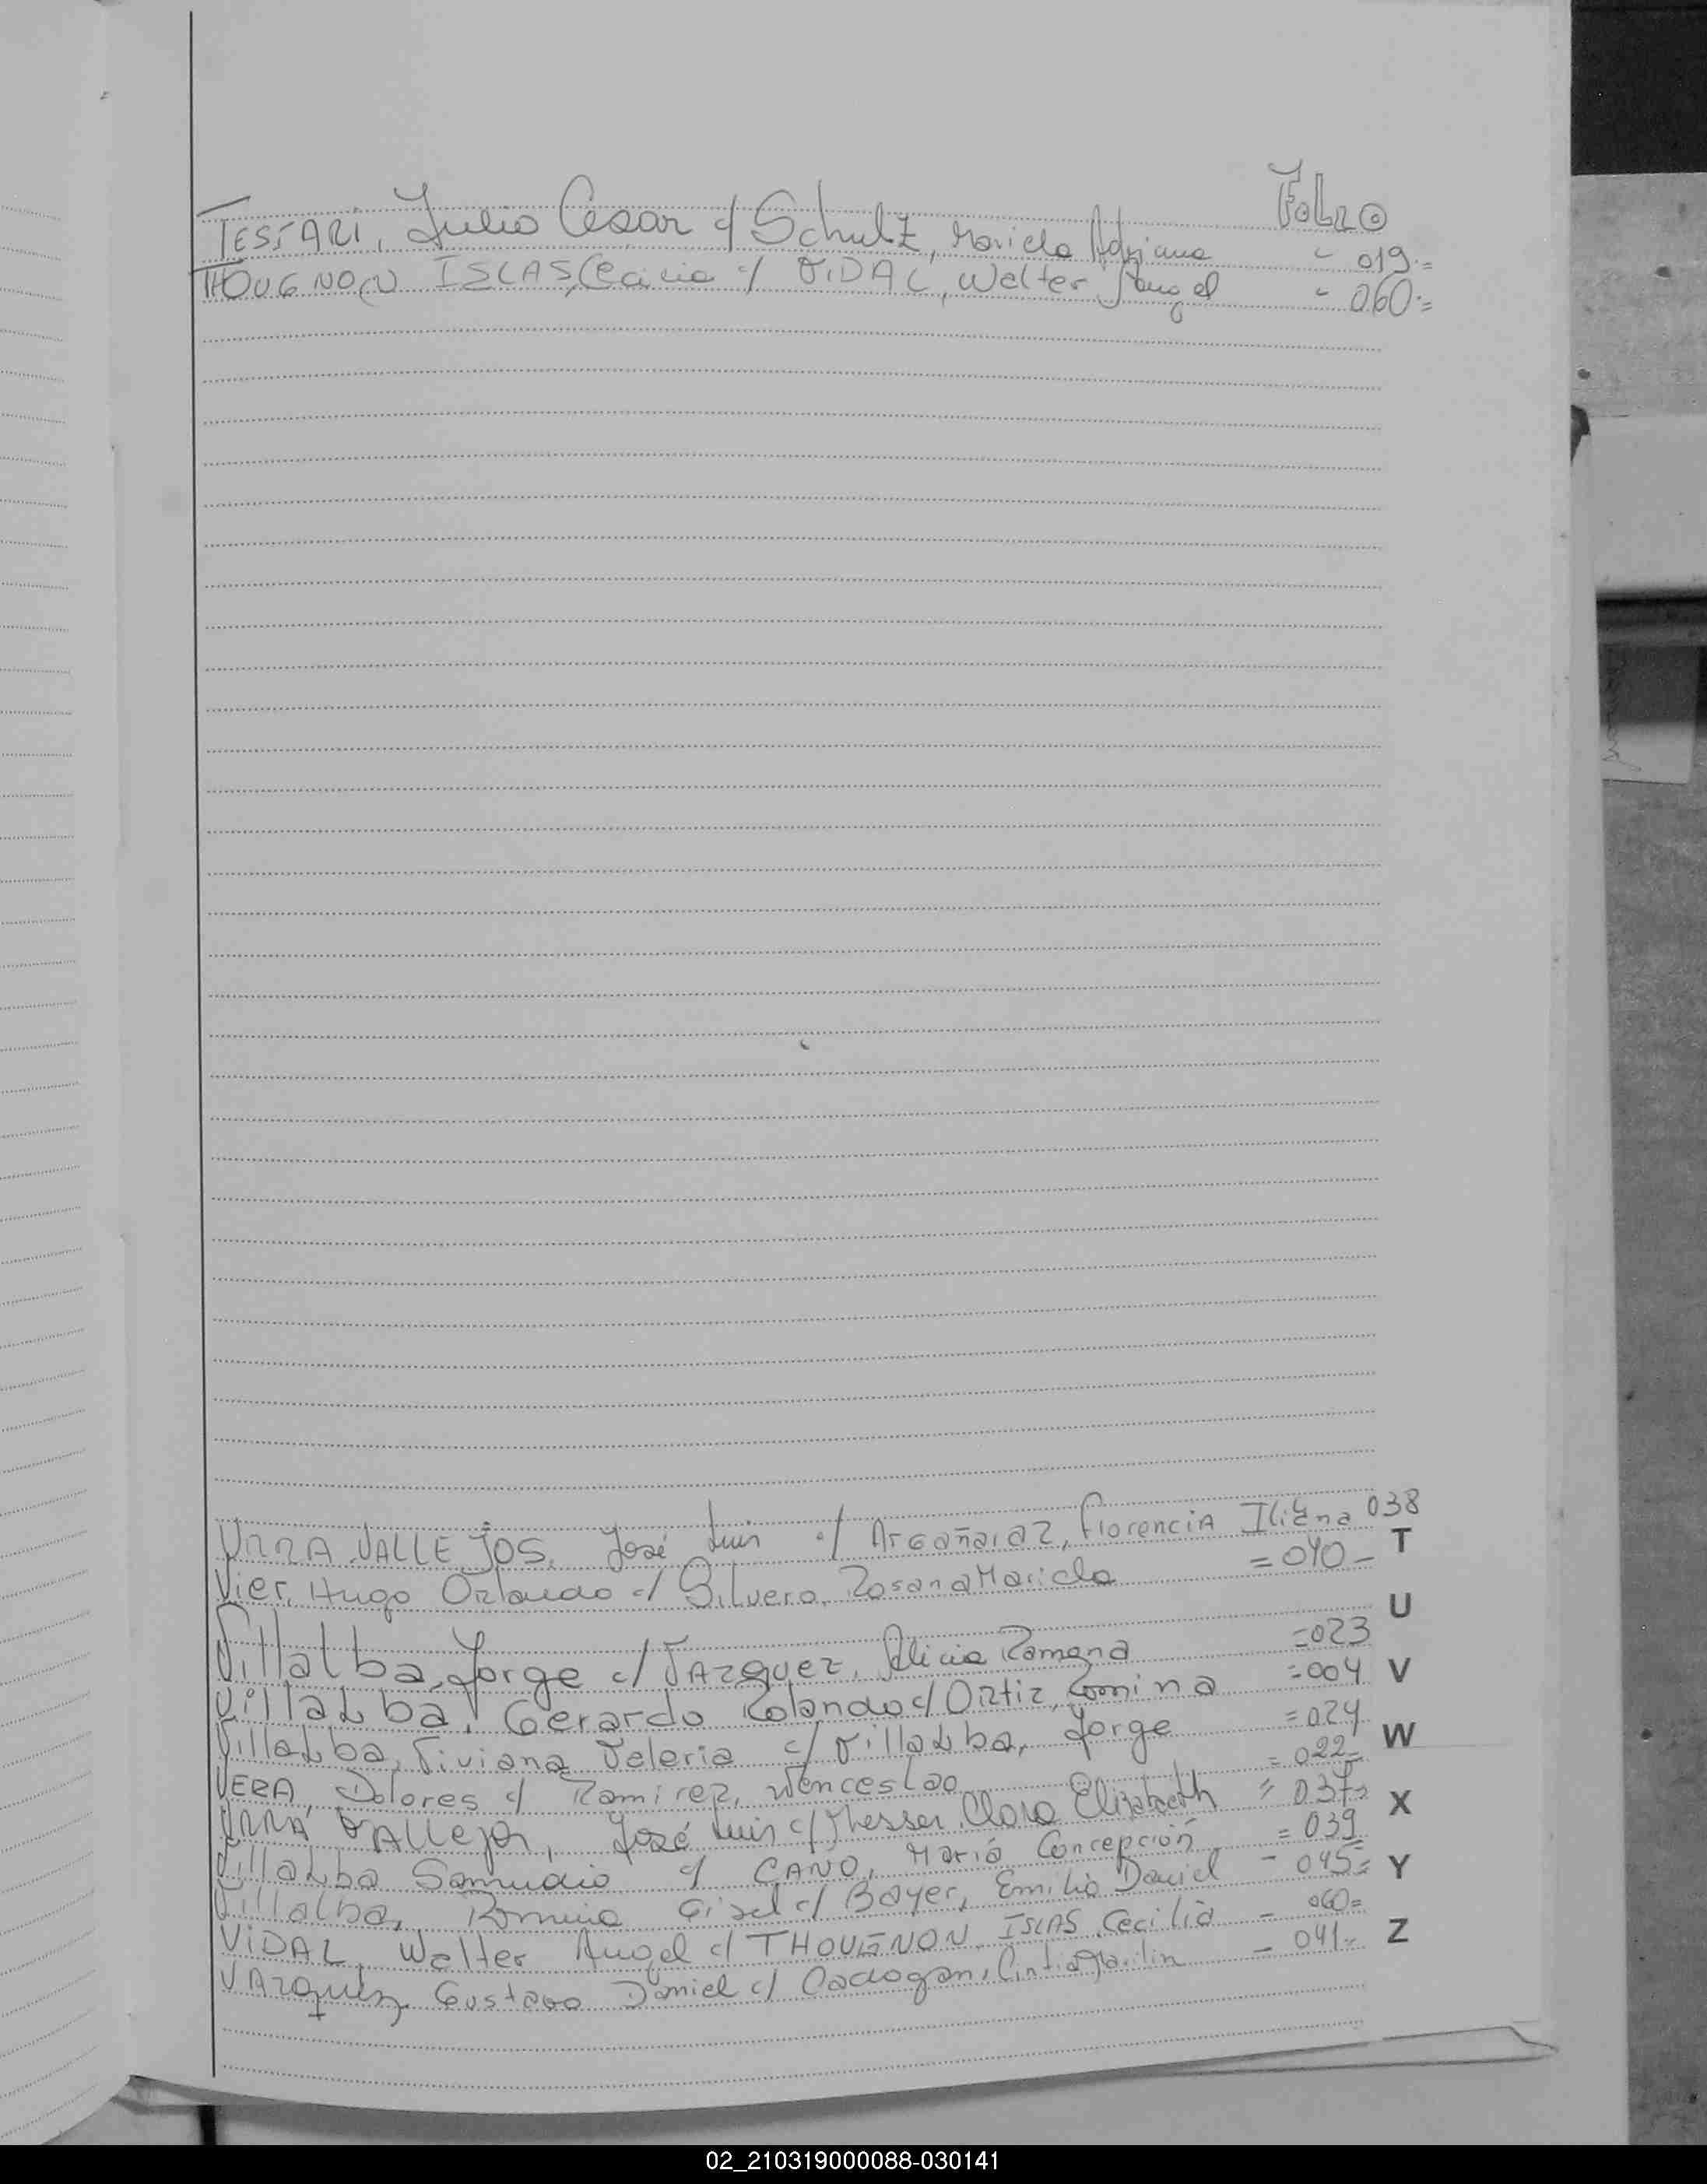 FOLIO
TESTARI, Julio Cesar c/ Schulz, Mariela Adriana - 019.=
THOUGNON ISLAS, Cecilia c/ VIDAL, Walter Angel - 060.=
URRA VALLEJOS. José Luis c/ Argañaraz, Florencia Iliana 038
T
Vier, Hugo Orlando c/ Silvero, Rosana Mariela = 040 -
U
Villalba, Jorge c/ VAZQUEZ, Alicia Ramona =023
Villalba, Gerardo Rolando c/ Ortiz, Romina =004
V
Villalba, Viviana Valeria c/ Villalba, Jorge =024
W
VERA, Dolores c/ Ramirez, Wenceslao = 022=
URRA VALLEJOS, José Luis c/ Messer, Clara Elizabeth = 037=
X
Villalba Samudio c/ CANO, María Concepción = 039
Villalba, Romina Gisel c/ Bayer, Emilio Daniel - 045=
Y
VIDAL, Walter Angel c/ THOUGNON, ISLAS, Cecilia - 060=
VAZQUEZ Gustavo Daniel c/ Cadogan, Cintia - 041-
Z
02_210319000088-030141